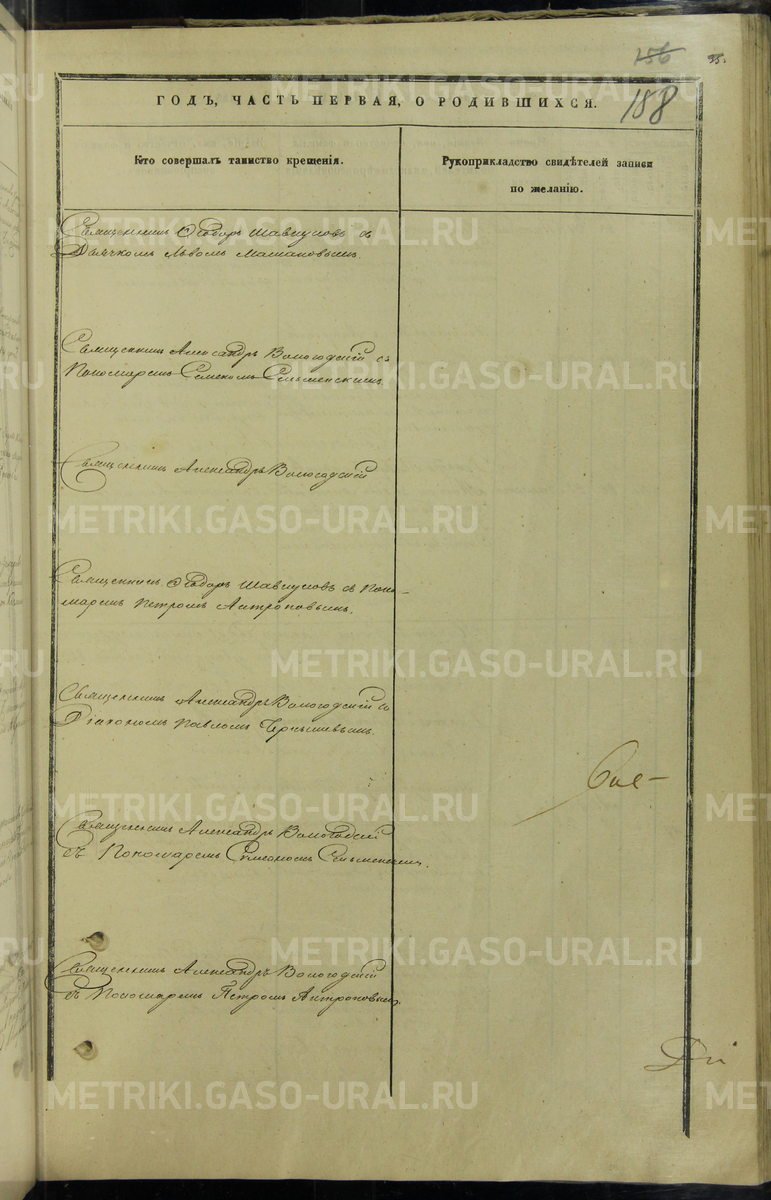 156 35.
188
ГОДЪ, ЧАСТЬ ПЕРВАЯ, О РОДИВШИХСЯ.
Кто совершалъ таинство крещенія.
Рукоприкладство свидѣтелей записи
по желанію.
Священникъ Ѳеодоръ съ
Дьячкомъ Львомъ
Священникъ Александръ Вологодскій съ
Пономаремъ
Священникъ Александръ Вологодскій
Священникъ Ѳеодоръ съ Поно-
маремъ Петромъ Антроповымъ.
Священникъ Александръ Вологодскій со
Діакономъ Павломъ
Священникъ Александръ Вологодскій
съ Пономаремъ Симеономъ
Священникъ Александръ Вологодскій
съ Пономаремъ Петромъ Антроповымъ.
METRIKI.GASO-URAL.RU